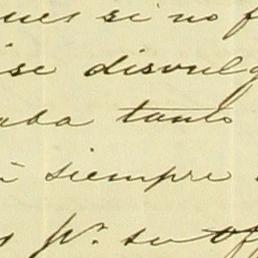 ues si no f
ise disvulg
ada tanto
siempre
Vr. su Aff